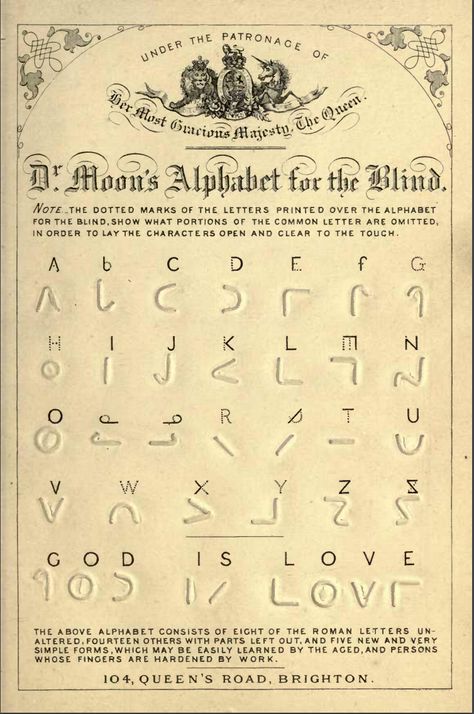 UNDER THE PATRONAGE OF
Her Most Gracious Majesty, The Queen.
Dr. Moon's Alphabet for the Blind.
NOTE._THE DOTTED MARKS OF THE LETTERS PRINTED OVER THE ALPHABET
FOR THE BLIND, SHOW WHAT PORTIONS OF THE COMMON LETTER ARE OMITTED,
IN ORDER TO LAY THE CHARACTERS OPEN AND CLEAR TO THE TOUCH.
A b C D E f G
H I J K L M N
O P Q R S T U
V W X Y Z &
GOD IS LOVE
THE ABOVE ALPHABET CONSISTS OF EIGHT OF THE ROMAN LETTERS UN-
ALTERED, FOURTEEN OTHERS WITH PARTS LEFT OUT, AND FIVE NEW AND VERY
SIMPLE FORMS, WHICH MAY BE EASILY LEARNED BY THE AGED, AND PERSONS
WHOSE FINGERS ARE HARDENED BY WORK.
104, QUEEN'S ROAD, BRIGHTON.